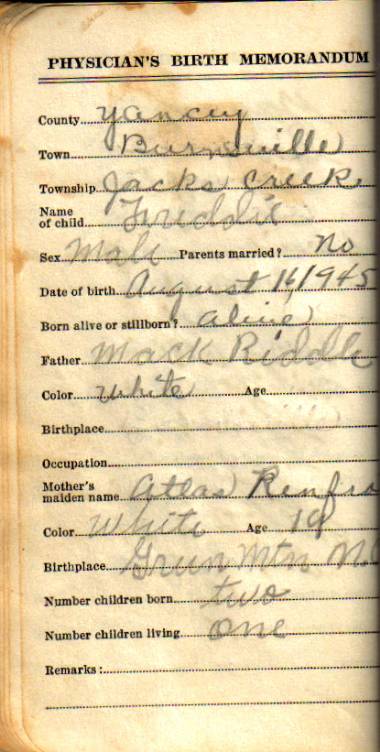 PHYSICIAN'S BIRTH MEMORANDUM
County Yancey
Town Burnsville
Township Jacks Creek
Name of child Freddie
Sex Male Parents married? no
Date of birth August 16, 1945
Born alive or stillborn? alive
Father Mack Riddle
Color white Age
Birthplace
Occupation
Mother's maiden name Renfro
Color White Age
Birthplace Green Mtn N.C
Number children born two
Number children living one
Remarks: